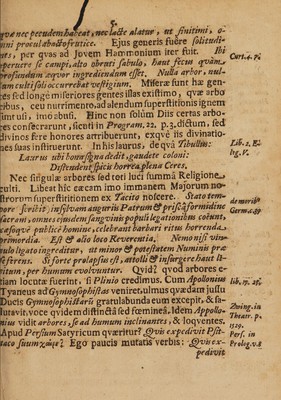 5
quæ nec pecudem habeat, nec lacte alatur, ut finitimi, o-
mni procul abactofrutice. Ejus generis fuêre solitudi-
nes, per quas ad Jovem Hammonium iter fuit. Ibi
aperuere se campi, alto obruti sabulo, haut fecus quàm
profundum æquor ingrediendum esset. Nulla arbor, nul-
lum culti soli occurrebat vestigium. Miseræ sunt hæ gen-
tes sed longè miseriores gentes illas existimo, quæ arbo
ribus, ceu nutrimento, ad alendum superstitionis ignem
sunt usi, imo abusi. Hinc non solùm Diis certas arbo-
res consecrarunt, sicenti in Program. 22. p. 3. dictum, sed
divinos fere honores attribuerunt, exquè iis divinatio-
nes suas instituerunt. In his laurus, de quâ Tibullus:
Laurus ubi bona signa dedit, gaudete coloni:
Distendet spicis horrea plena Ceres.
Nec singulæ arbores sed tori luci summâ Religione
culti. Libeat hîc cæcam imo immanem Majorum no-
strorum superstitionem ex Tacito noscere. Stato tem-
pore scribit, in sylvam auguriis Patrum & priscâ formidine
sacram, omnes ejusdem sanguinis populi legationibus coëunt,
cæsoquè publicè homine, celebrant barbari ritus horrenda
primordia. Est & alio loco Reverentia. Nemo nisi vin-
culo ligato ingreditur, ut minor & potestatem Numinis præ
se ferens. Si forte prolapsus est, attolli & insurgere haut li-
citum, per humum evolvuntur. Qvid? quod arbores e-
tiam locutæ fuerint, si Plinio credimus. Cum Apollonius
Tyaneus ad Gymnosophistas veniret, ulmus quædam jussu
Ducis Gymnosophistarũ gratulabunda eum excepit, & sa-
lutavit, voce quidem distinctâ sed fœmineâ. Idem Apollo-
nius vidit arbores, se ad humum inclinantes, & loqventes.
Apud Persium Satyricum quæritur? Qvis expedivit Psit-
taco suum χαῖρε? Ego paucis mutatis verbis: Qvis ex-
pedivit
Curt. 4. 7.
Lib. 2. El
leg. V.
de morib
Germa. 39
lib. 17. 25.
Zwing. in
Theatr. p.
1529.
Pers. in
Prolog. v. 8